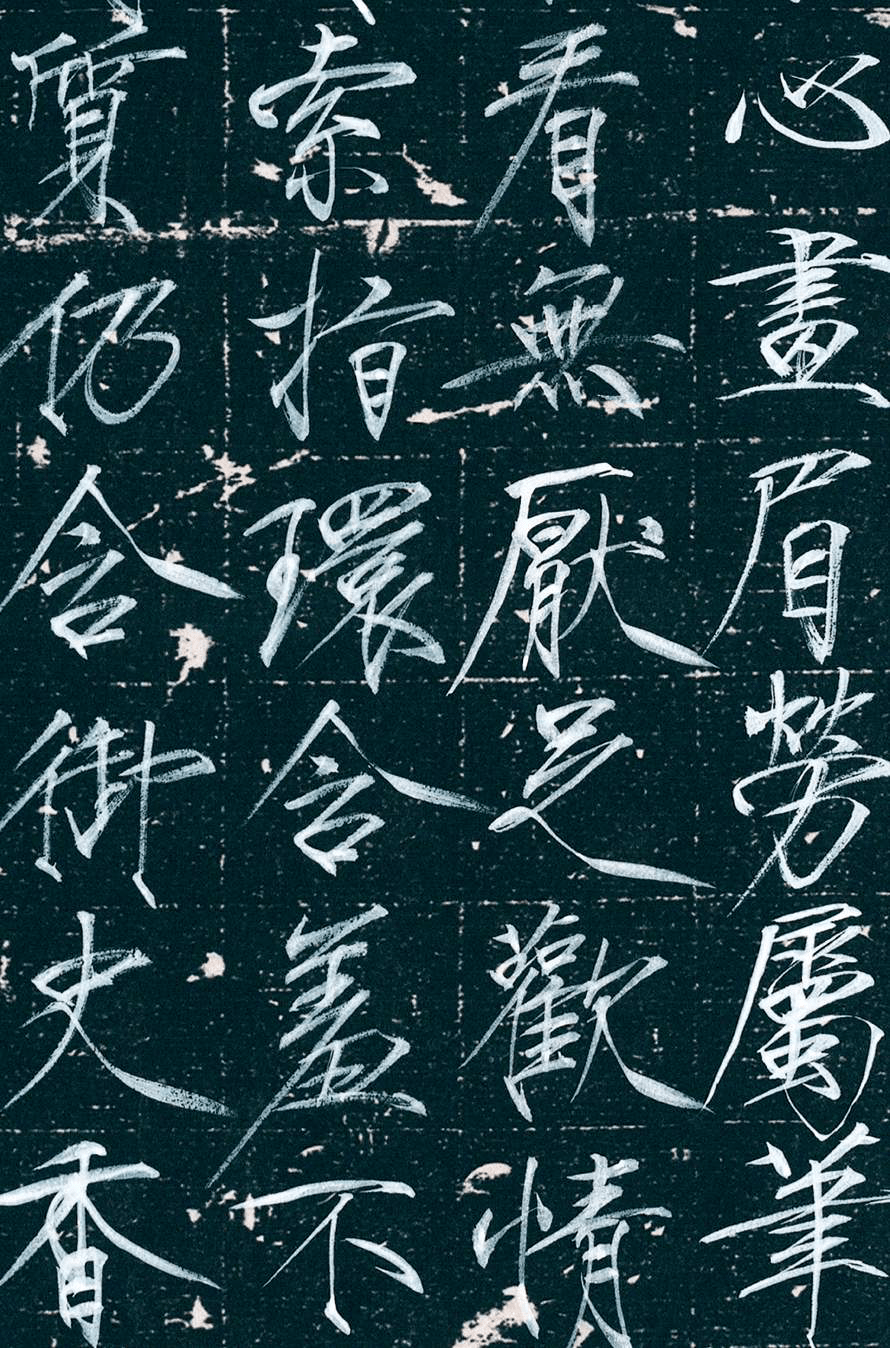 心畫眉勞屬筆
看無厭足歡情
索指環含羞不
質仍含御史香